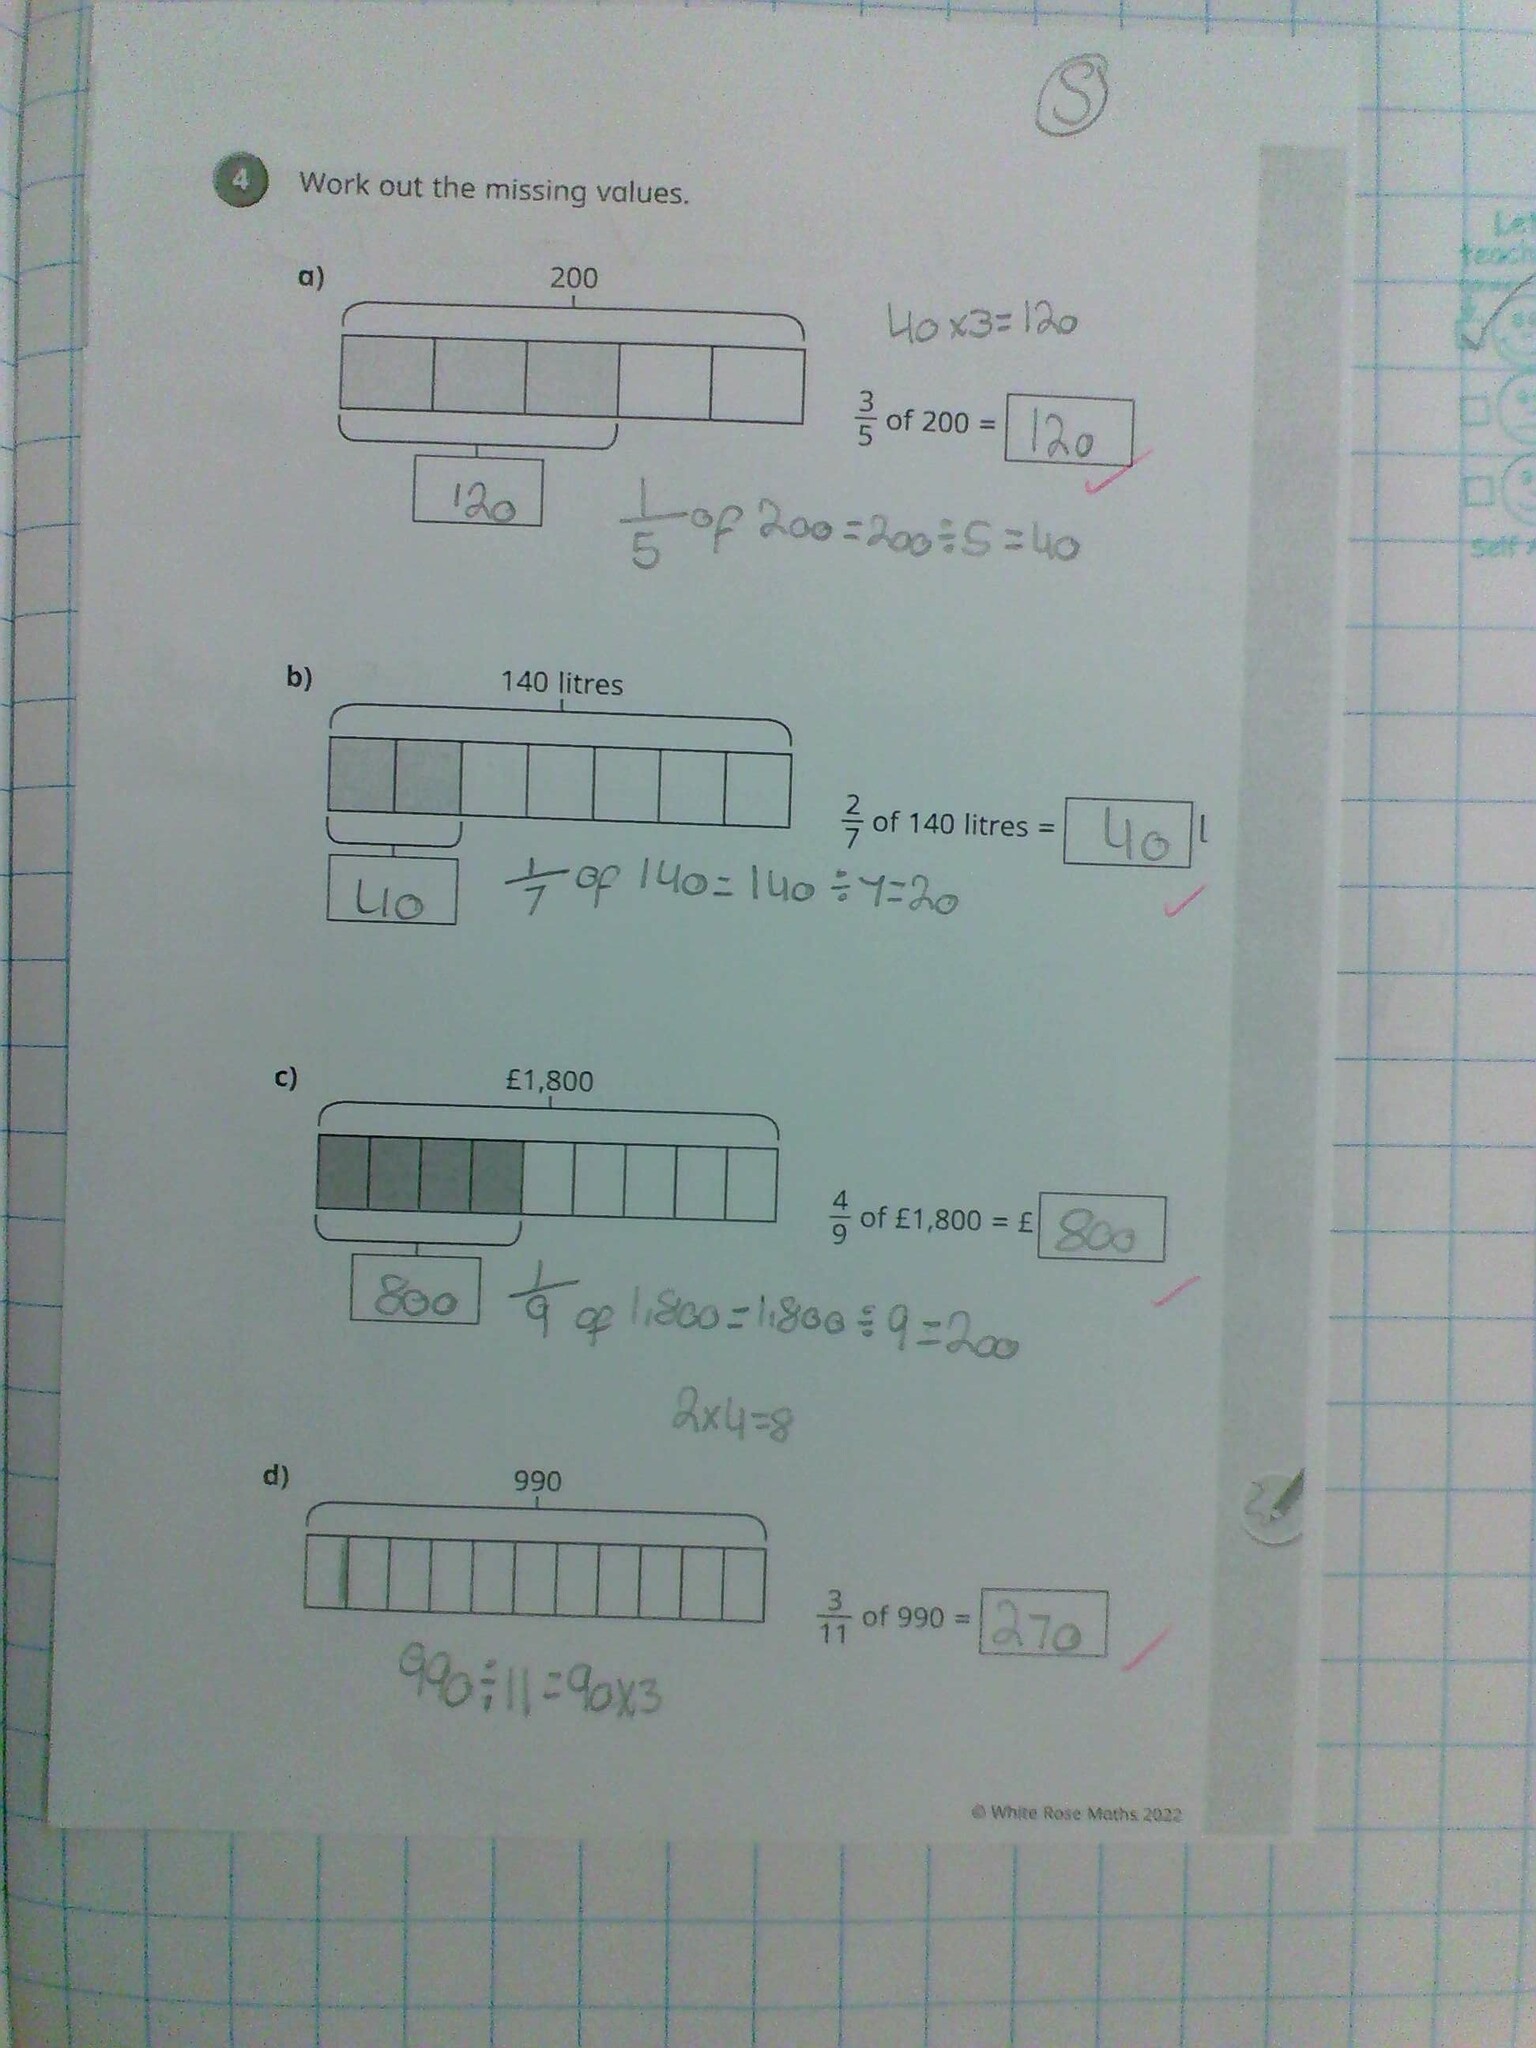 S
4 Work out the missing values.
a) 200
40 x 3 = 120
3/5 of 200 = 120
120
1/5 of 200 = 200 ÷ 5 = 40
b) 140 litres
2/7 of 140 litres = 40 l
40
1/7 of 140 = 140 ÷ 7 = 20
c) £1,800
4/9 of £1,800 = £ 800
800
1/9 of 1,800 = 1,800 ÷ 9 = 200
2x4=8
d) 990
3/11 of 990 = 270
990 ÷ 11 = 90x3
© White Rose Maths 2022